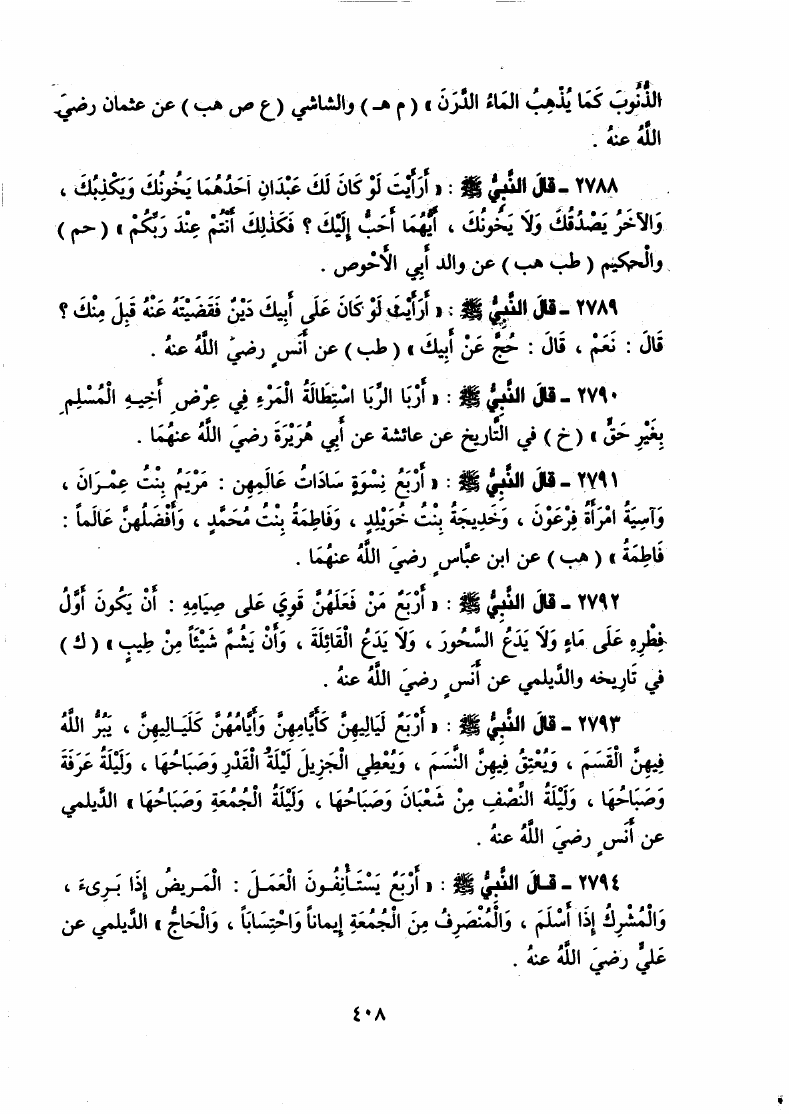 الذُّنُوبَ كَمَا يُذْهِبُ المَاءُ الدَّرَنَ » ( م هـ ) والشاشي ( ع ص هب ) عن عثمان رضيَ
اللَّهُ عنهُ .
٢٧٨٨ - قالَ النَّبِيُّ ﷺ : « أَرَأَيْتَ لَوْ كَانَ لَكَ عَبْدَانِ أَحَدُهُمَا يَخُونُكَ وَيَكْذِبُكَ ،
وَالآخَرُ يَصْدُقُكَ وَلاَ يَخُونُكَ ، أَيُّهُمَا أَحَبُّ إِلَيْكَ ؟ فَكَذٰلِكَ أَنْتُمْ عِنْدَ رَبِّكُمْ » ( حم )
والحكيم ( طب هب ) عن والد أبي الأحوص .
٢٧٨٩ - قالَ النَّبِيُّ ﷺ : « أَرَأَيْتَ لَوْ كَانَ عَلَى أَبِيكَ دَيْنٌ فَقَضَيْتَهُ عَنْهُ قُبِلَ مِنْكَ ؟
قَالَ : نَعَمْ ، قَالَ : حُجَّ عَنْ أَبِيكَ » ( طب ) عن أنسٍ رضيَ اللَّهُ عنهُ .
٢٧٩٠ - قالَ النَّبِيُّ ﷺ : « أَرْبَا الرِّبَا اسْتِطَالَةُ الْمَرْءِ فِي عِرْضِ أَخِيهِ الْمُسْلِمِ
بِغَيْرِ حَقٍّ » ( خ ) في التَّاريخِ عن عائشة عن أَبي هُرَيْرَةَ رضيَ اللَّهُ عنهُمَا .
٢٧٩١ - قالَ النَّبِيُّ ﷺ : « أَرْبَعُ نِسْوَةٍ سَادَاتُ عَالَمِهِنَّ : مَرْيَمُ بِنْتُ عِمْرَانَ ،
وَآسِيَةُ امْرَأَةُ فِرْعَوْنَ ، وَخَدِيجَةُ بِنْتُ خُوَيْلِدٍ ، وَفَاطِمَةُ بِنْتُ مُحَمَّدٍ ، وَأَفْضَلُهُنَّ عَالَماً :
فَاطِمَةُ » ( هب ) عن ابن عبَّاسٍ رضيَ اللَّهُ عنهُمَا .
٢٧٩٢ - قالَ النَّبِيُّ ﷺ : « أَرْبَعٌ مَنْ فَعَلَهُنَّ قَوِيَ عَلى صِيَامِهِ : أَنْ يَكُونَ أَوَّلُ
فِطْرِهِ عَلَى مَاءٍ وَلاَ يَدَعُ السَّحُورَ ، وَلاَ يَدَعُ الْقَائِلَةَ ، وَأَنْ يَشُمَّ شَيْئاً مِنْ طِيبٍ » ( ك )
في تَارِيخه والدَّيلمي عن أَنسٍ رضيَ اللَّهُ عنهُ .
٢٧٩٣ - قالَ النَّبِيُّ ﷺ : « أَرْبَعٌ لَيَالِيهِنَّ كَأَيَّامِهِنَّ وَأَيَّامُهُنَّ كَلَيَالِيهِنَّ ، يَبَرُّ اللَّهُ
فِيهِنَّ الْقَسَمَ ، وَيُعْتِقُ فِيهِنَّ النَّسَمَ ، وَيُعْطِي الْجَزِيلَ لَيْلَةُ الْقَدْرِ وَصَبَاحُهَا ، وَلَيْلَةُ عَرَفَةَ
وَصَبَاحُهَا ، وَلَيْلَةُ النِّصْفِ مِنْ شَعْبَانَ وَصَبَاحُهَا ، وَلَيْلَةُ الْجُمُعَةِ وَصَبَاحُهَا » الدَّيلمي
عن أَنسٍ رضيَ اللَّهُ عنهُ .
٢٧٩٤ - قالَ النَّبِيُّ ﷺ : « أَرْبَعٌ يَسْتَأْنِفُونَ الْعَمَلَ : الْمَرِيضُ إِذَا بَرِىءَ ،
وَالْمُشْرِكُ إِذَا أَسْلَمَ ، وَالْمُنْصَرِفُ مِنَ الْجُمُعَةِ إِيمَاناً وَاحْتِسَاباً ، وَالْحَاجُّ » الدَّيلمي عن
عَليٍّ رضيَ اللَّهُ عنهُ .
٤٠٨